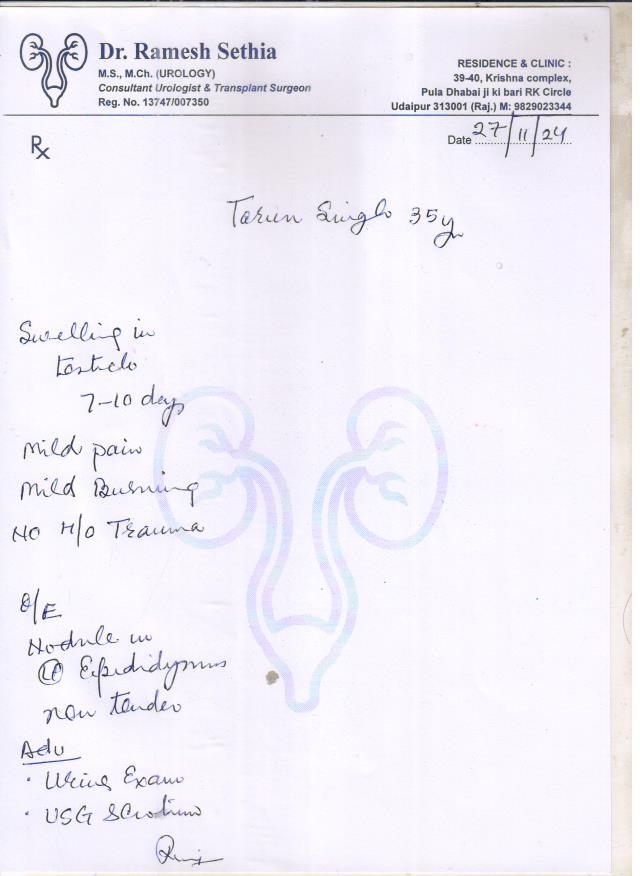 Dr. Ramesh Sethia
M.S., M.Ch. (UROLOGY)
Consultant Urologist & Transplant Surgeon
Reg. No. 13747/007350
RESIDENCE & CLINIC :
39-40, Krishna complex,
Pula Dhabai ji ki bari RK Circle
Udaipur 313001 (Raj.) M: 9829023344
Date 27/11/24
Rx
Tarun Singh 35y
Swelling in
testicle
7-10 days
Mild pain
Mild Burning
NO H/O Trauma
O/E
Nodule in
Epididymus
non tender
Adv
· Urine Exam
· USG Scrotum